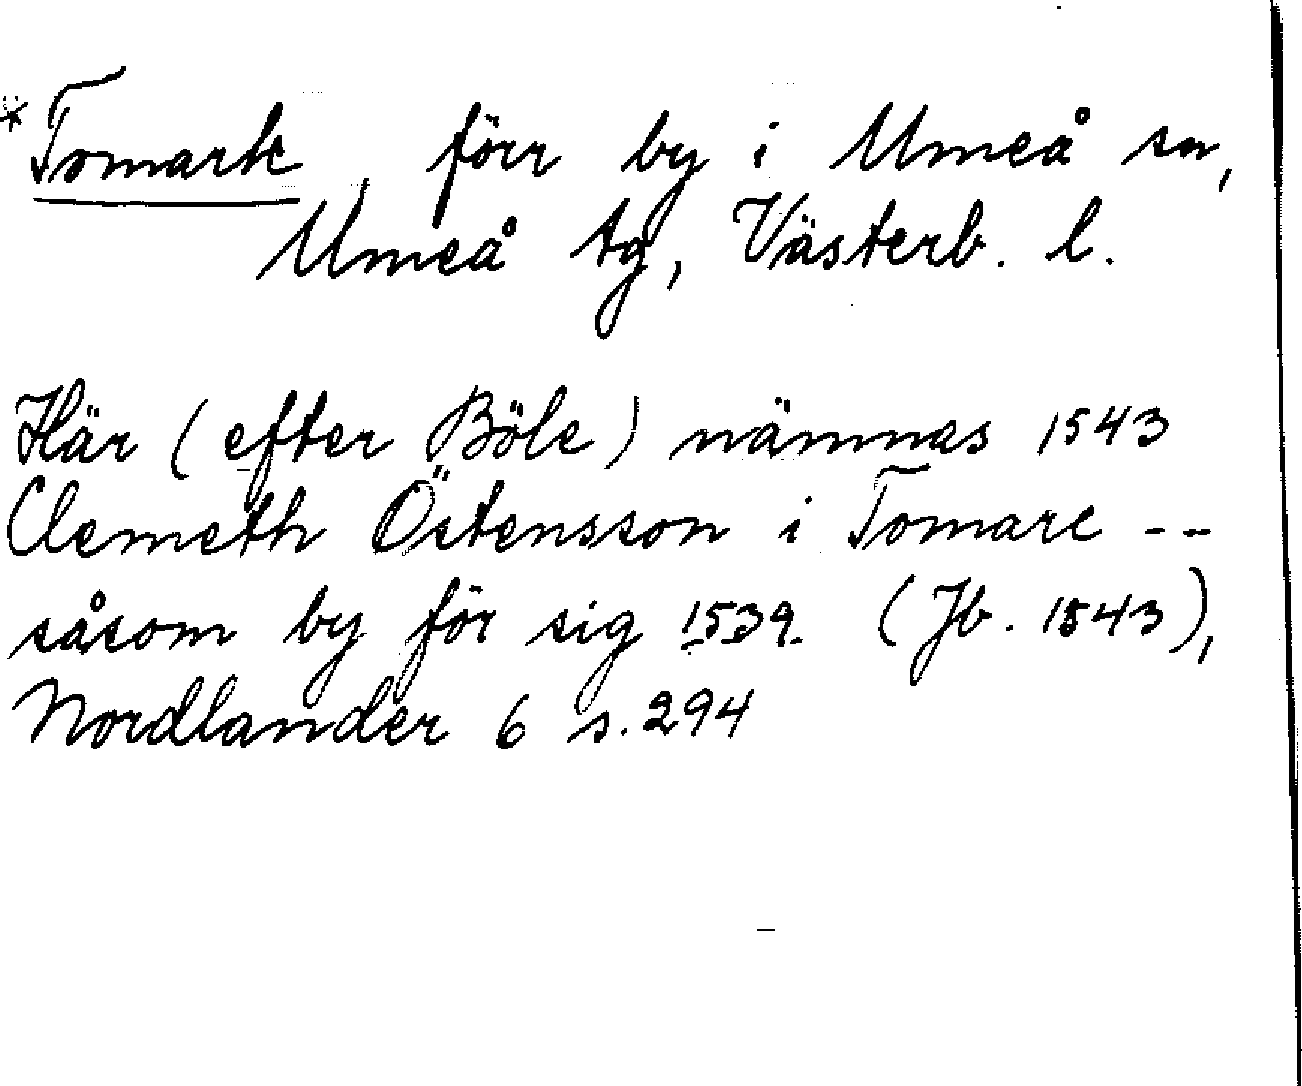 * Tomark, förr by i Umeå sn,
Umeå tg, Västerb. l.
Här (efter Böle) nämnas 1543
Clemeth Östensson i Tomarc --
såsom by för sig 1539 (Jb. 1543),
Nordlander 6 s. 294